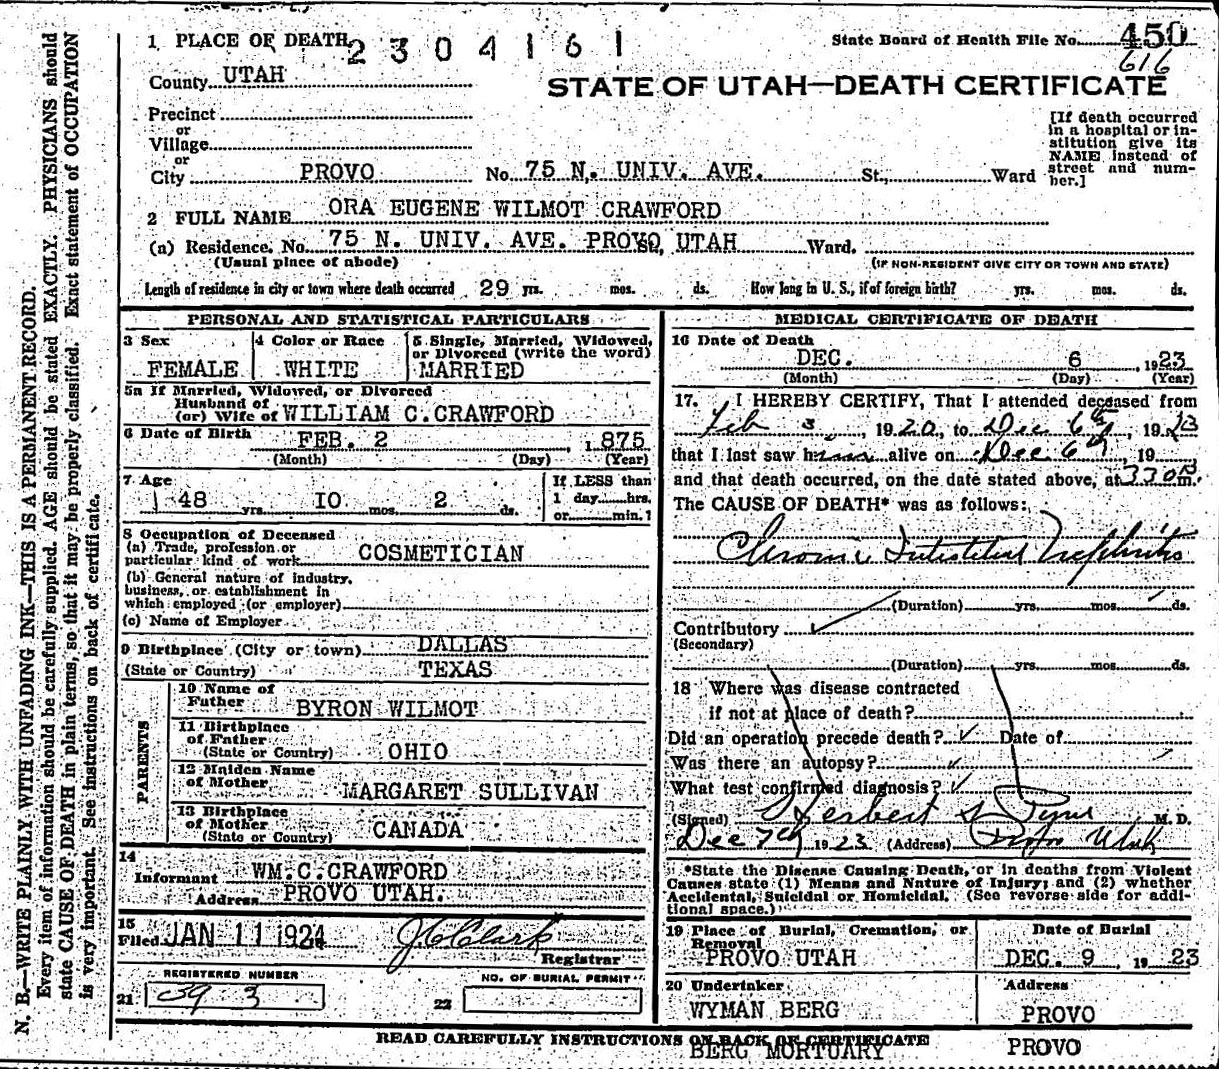 N. B.—WRITE PLAINLY WITH UNFADING INK—THIS IS A PERMANENT RECORD.
Every item of information should be carefully supplied. AGE should be stated EXACTLY. PHYSICIANS should
state CAUSE OF DEATH in plain terms, so that it may be properly classified. Exact statement of OCCUPATION
is very important. See instructions on back of certificate.
1 PLACE OF DEATH 2304161
State Board of Health File No. 450
616
County UTAH
STATE OF UTAH—DEATH CERTIFICATE
Precinct
or
Village
or
City PROVO No. 75 N. UNIV. AVE. St., Ward
[If death occurred
in a hospital or in-
stitution give its
NAME instead of
street and num-
ber.]
2 FULL NAME ORA EUGENE WILMOT CRAWFORD
(a) Residence. No. 75 N. UNIV. AVE. PROVO, UTAH Ward.
(Usual place of abode) (IF NON-RESIDENT GIVE CITY OR TOWN AND STATE)
Length of residence in city or town where death occurred 29 yrs. mos. ds. How long in U. S., if of foreign birth? yrs. mos. ds.
PERSONAL AND STATISTICAL PARTICULARS
3 Sex 4 Color or Race 5 Single, Married, Widowed,
or Divorced (write the word)
FEMALE WHITE MARRIED
5a If Married, Widowed, or Divorced
Husband of
(or) Wife of WILLIAM C.CRAWFORD
6 Date of Birth FEB. 2 1875
(Month) (Day) (Year)
7 Age If LESS than
48 yrs. IO mos. 2 ds. 1 day hrs.
or min.?
8 Occupation of Deceased
(a) Trade, profession or
particular kind of work COSMETICIAN
(b) General nature of industry,
business, or establishment in
which employed (or employer)
(c) Name of Employer
9 Birthplace (City or town) DALLAS
(State or Country) TEXAS
PARENTS
10 Name of
Father BYRON WILMOT
11 Birthplace
of Father
(State or Country) OHIO
12 Maiden Name
of Mother MARGARET SULLIVAN
13 Birthplace
of Mother
(State or Country) CANADA
14
Informant WM.C.CRAWFORD
Address PROVO UTAH.
15
Filed JAN 11 1924 J C Clark
Registrar
REGISTERED NUMBER NO. OF BURIAL PERMIT
21 22
MEDICAL CERTIFICATE OF DEATH
16 Date of Death
DEC. 6, 1923
(Month) (Day) (Year)
17. I HEREBY CERTIFY, That I attended deceased from
Feb 3, 1920, to Dec 6th, 1923
that I last saw h alive on Dec 6th, 19
and that death occurred, on the date stated above, at 330 P m.
The CAUSE OF DEATH* was as follows:
Chronic Intistitial Nephritis
(Duration) yrs. mos. ds.
Contributory
(Secondary)
(Duration) yrs. mos. ds.
18 Where was disease contracted
if not at place of death?
Did an operation precede death? Date of
Was there an autopsy?
What test confirmed diagnosis?
(Signed) Herbert S Pyne M. D.
Dec 7th 1923 (Address) Provo Utah
*State the Disease Causing Death, or in deaths from Violent
Causes state (1) Means and Nature of Injury; and (2) whether
Accidental, Suicidal or Homicidal. (See reverse side for addi-
tional space.)
19 Place of Burial, Cremation, or
Removal Date of Burial
PROVO UTAH DEC. 9, 19 23
20 Undertaker Address
WYMAN BERG PROVO
READ CAREFULLY INSTRUCTIONS ON BACK OF CERTIFICATE
BERG MORTUARY PROVO